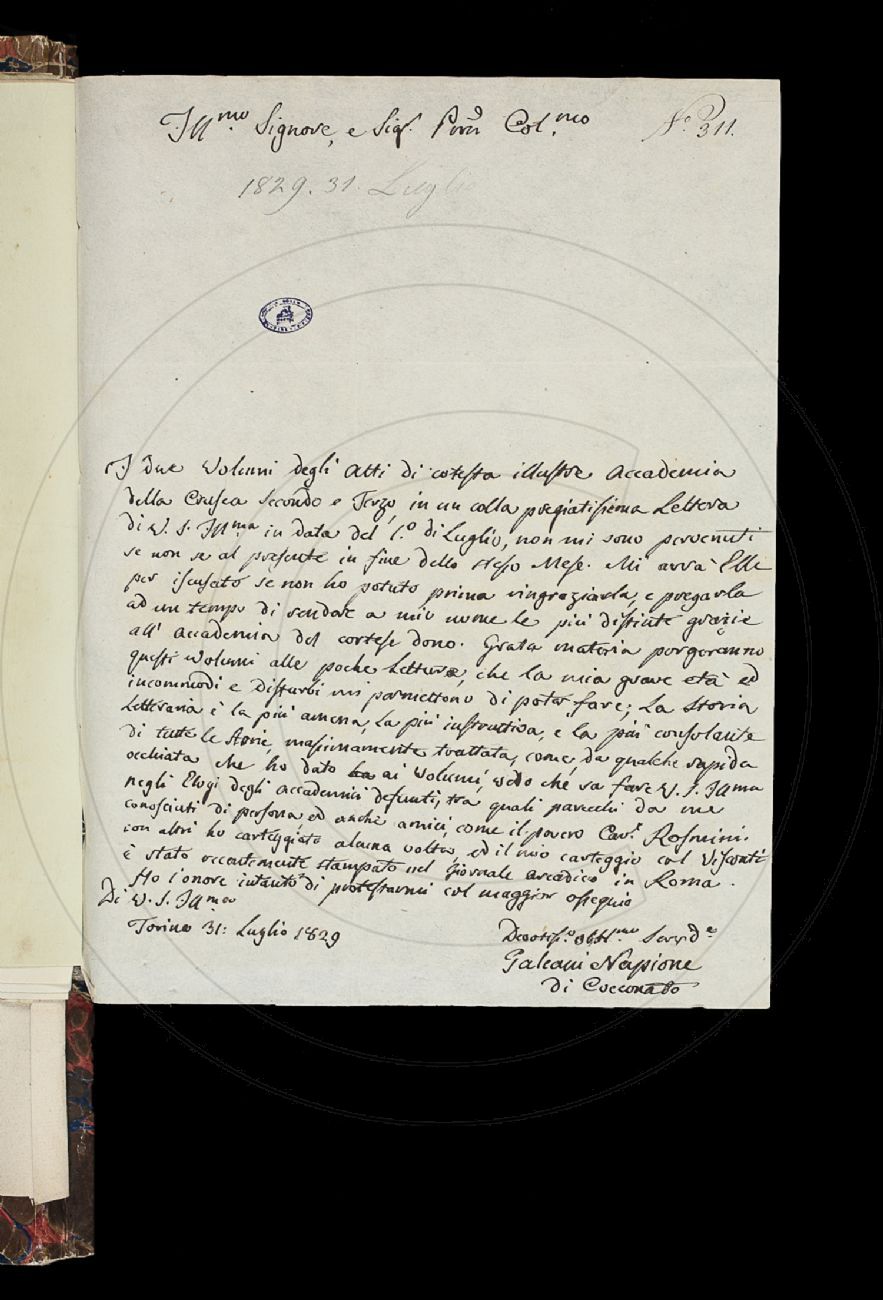 Ill.mo Signore, e Sig.r Pron Col.mo
N.o 311.
1829. 31. Luglio
I due Volumi degli Atti di cotesta illustre Accademia
della Crusca Secondo e Terzo, in un colla pregiatissima Lettera
di V. S. Ill.ma in data del 1.o di Luglio, non mi sono pervenuti
se non se al presente in fine dello stesso Mese. Mi avrà Ella
per iscusato se non ho potuto prima ringraziarla, e pregarla
ad un tempo di rendere a mio nome le più distinte grazie
all' Accademia del cortese dono. Grata materia porgeranno
questi Volumi alle poche Letture, che la mia grave età ed
incommodi e disturbi mi permettono di poter fare; La Storia
Letteraria è la più amena, la più instruttiva, e la più consolante
di tutte le storie, massimamente trattata, come, da qualche rapida
occhiata che ho dato ai Volumi, vedo che sa fare V. S. Ill.ma
negli Elogi degli Accademici defunti, tra quali parecchi da me
conosciuti di persona, ed anche amici, come il povero Cav.r Rosmini.
con altri ho carteggiato alcuna volta, ed il mio carteggio col Visconti
è stato recentemente stampato nel Giornale Arcadico in Roma.
Ho l'onore intanto di protestarmi col maggior ossequio
Di V. S. Ill.ma
Torino 31: Luglio 1829
Devotiss.o obbl.mo Servid.e
Galeani Napione
di Cocconato